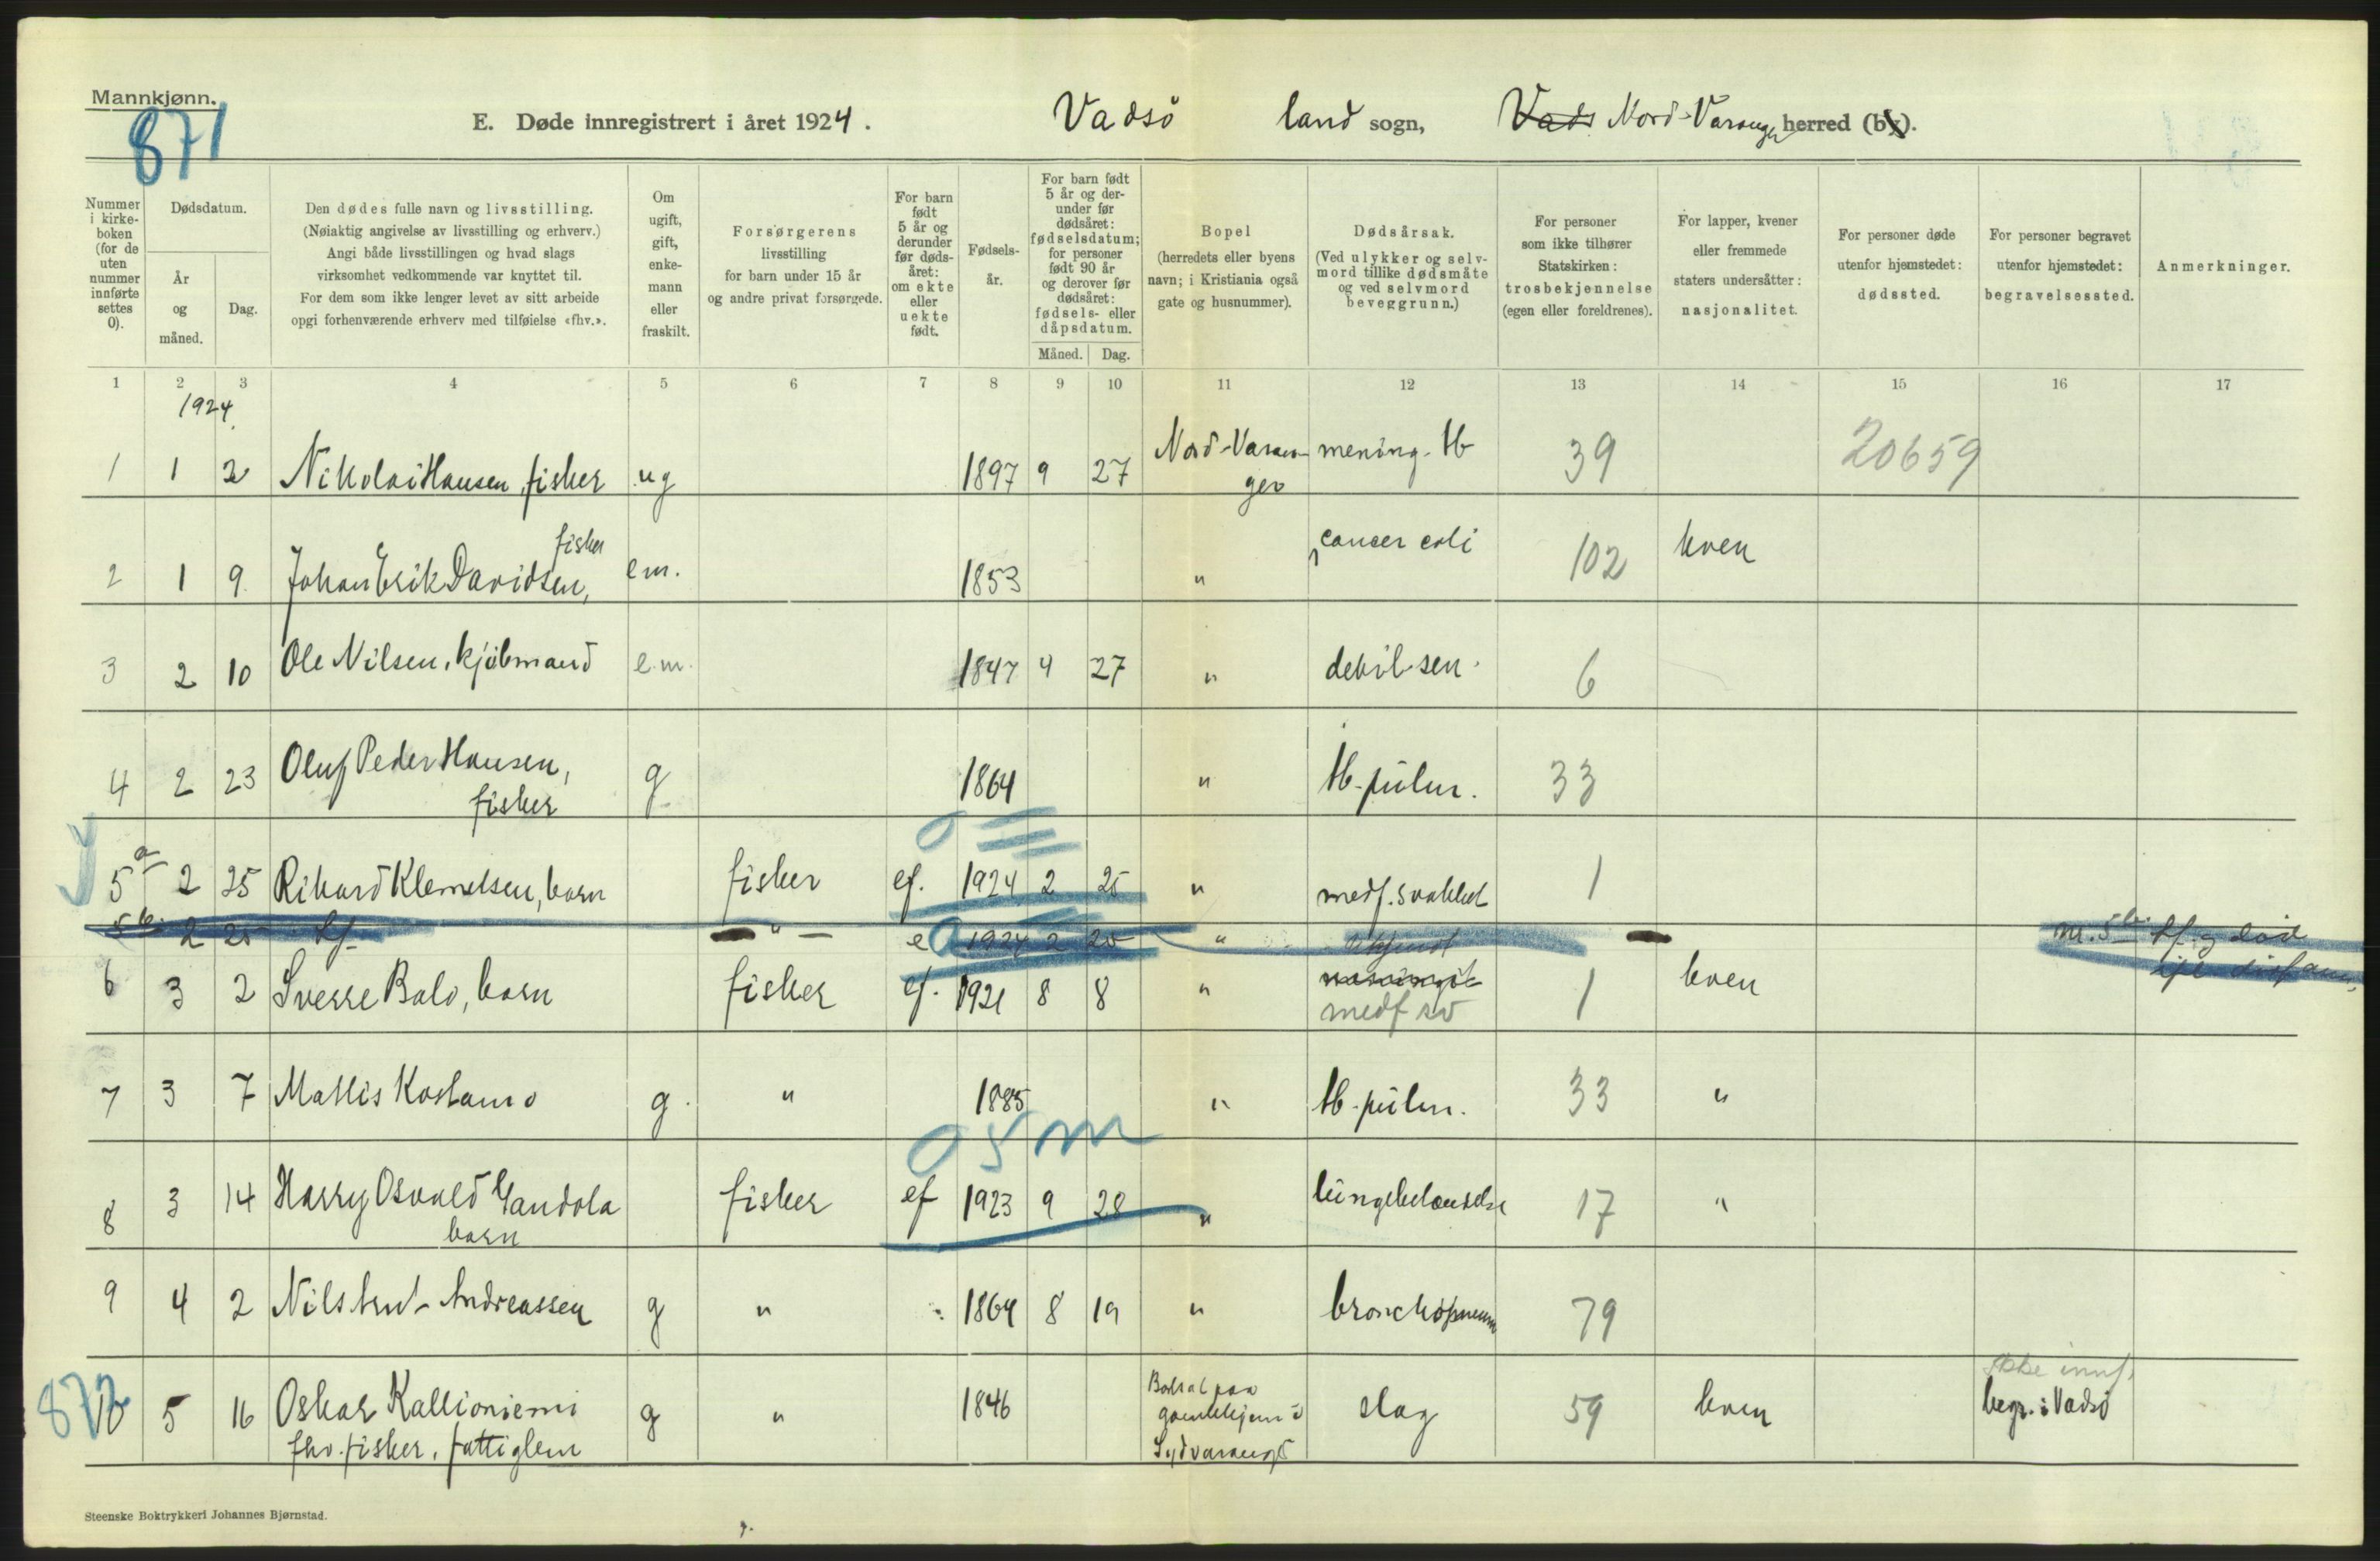 Mannkjønn.
871
E. Døde innregistrert i året 1924. Vadsö land sogn, Vads Nord-Varanger herred (by).
Nummer i kirkeboken (for de uten nummer innførte settes 0).
Dødsdatum.
År og måned.
Dag.
Den dødes fulle navn og livsstilling.
(Nøiaktig angivelse av livsstilling og erhverv.)
Angi både livsstillingen og hvad slags
virksomhet vedkommende var knyttet til.
For dem som ikke lenger levet av sitt arbeide
opgi forhenværende erhverv med tilføielse «fhv.».
Om ugift, gift, enkemann eller fraskilt.
Forsørgerens
livsstilling
for barn under 15 år
og andre privat forsørgede.
For barn født 5 år og derunder før dødsåret: om ekte eller uekte født.
Fødselsår.
For barn født 5 år og derunder før dødsåret: fødselsdatum; for personer født 90 år og derover før dødsåret: fødsels- eller dåpsdatum.
Måned. Dag.
Bopel
(herredets eller byens
navn; i Kristiania også
gate og husnummer).
Dødsårsak.
(Ved ulykker og selvmord tillike dødsmåte og ved selvmord beveggrunn.)
For personer
som ikke tilhører
Statskirken:
trosbekjennelse
(egen eller foreldrenes).
For lapper, kvener
eller fremmede
staters undersåtter:
nasjonalitet.
For personer døde
utenfor hjemstedet:
dødssted.
For personer begravet
utenfor hjemstedet:
begravelsessted.
Anmerkninger.
1 2 3 4 5 6 7 8 9 10 11 12 13 14 15 16 17
1924.
1 1 2 Nikolai Hansen, fisker ug 1897 9 27 Nord-Varanger mening. tb 39 20659
2 1 9 Johan Erik Davidsen, fisker em. 1853 " cancer coli 102 kven
3 2 10 Ole Nilsen, kjöbmand e.m. 1847 4 27 " debil. sen. 6
4 2 23 Oluf Peder Hansen, fisker g 1864 " tb. pulm. 33
5 a 2 25 Rikard Klemetsen, barn fisker ef. 1924 2 25 " medf. svakhet 1
5 b. 2 25 " e 1924 2 25 " nr. 5 b.
6 3 2 Sverre Balo, barn fisker ef. 1921 8 8 " medf sv 1 kven
7 3 7 Mattis Kostamo g. " 1885 " tb. pulm. 33 "
8 3 14 Harry Osvald Gandola barn fisker ef 1923 9 28 " lungebetændelse 17 "
9 4 2 Nils Andr. Andreassen g " 1864 8 19 " bronchopneum 79
872
10 5 16 Oskar Kallioniemi g " 1846 Bosat paa gamlehjem i Sydvaranger slag 59 kven ikke innf. begr. i Vadsö
fhv. fisker, fattiglem
Steenske Boktrykkeri Johannes Bjørnstad.